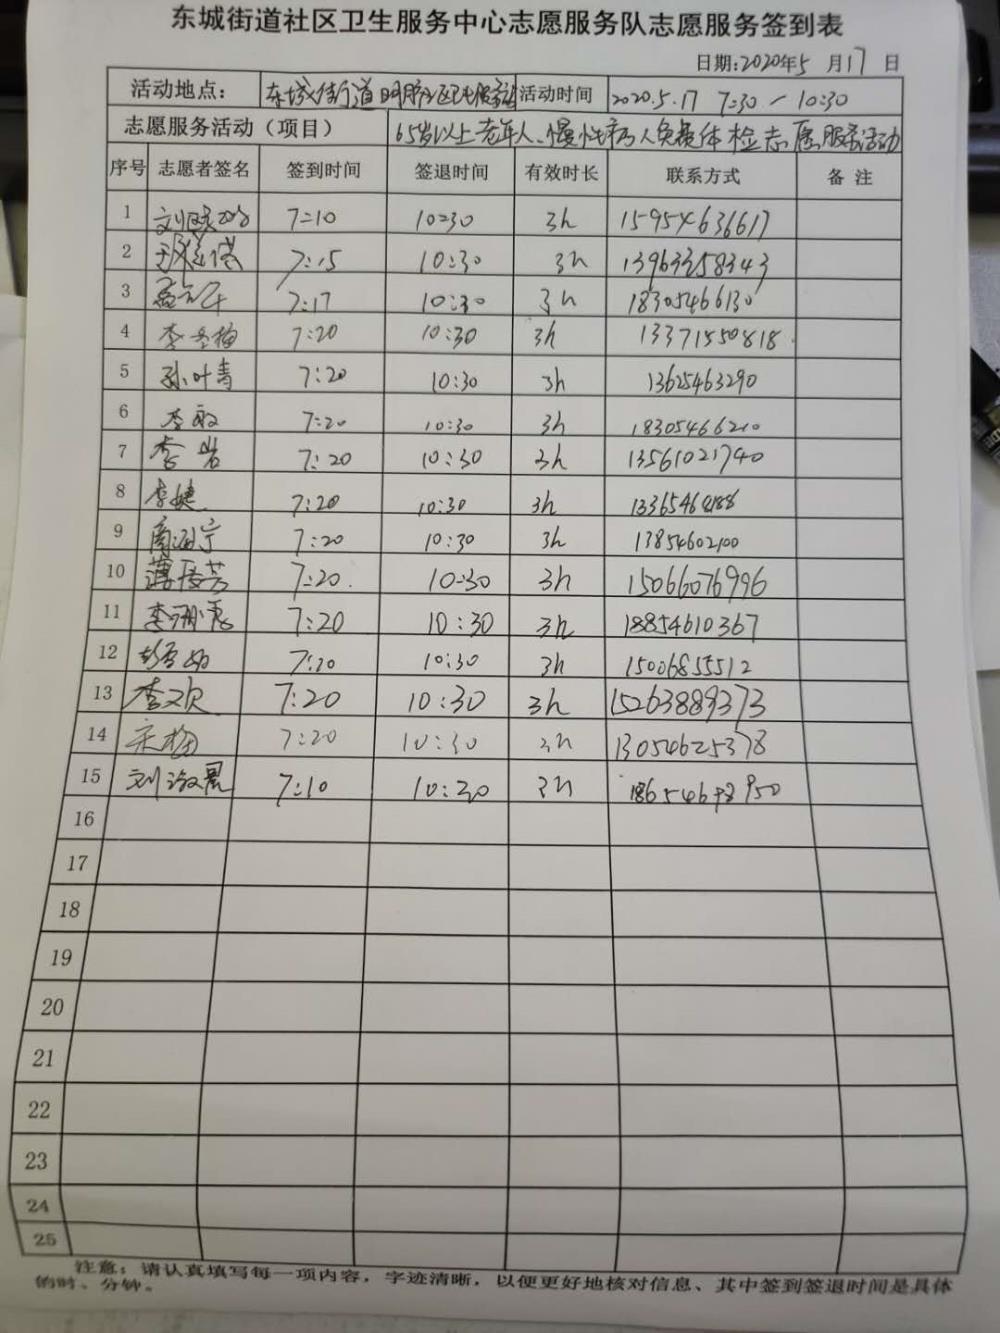 东城街道社区卫生服务中心志愿服务队志愿服务签到表
日期:2020年5月17日
活动地点: 东城街道 活动时间 2020.5.17 7:30-10:30
志愿服务活动（项目） 65岁以上老年人、慢性病人免费体检志愿服务活动
序号 志愿者签名 签到时间 签退时间 有效时长 联系方式 备注
1 7:10 10:30 3h 15954636617
2 7:15 10:30 3h 13963258343
3 7:17 10:30 3h 18305466130
4 李冬梅 7:20 10:30 3h 13371550818
5 孙叶青 7:20 10:30 3h 13625463290
6 李敏 7:20 10:30 3h 18305466210
7 李岩 7:20 10:30 3h 13561021740
8 李婕 7:20 10:30 3h
9 7:20 10:30 3h 13854602100
10 7:20. 10:30 3h 15066076996
11 7:20 10:30 3h 18854610367
12 10:30 3h 15006855512
13 李欢 7:20 10:30 3h 15263889373
14 7:20 10:30 3h 13054625378
15 7:10 10:30 3h
16
17
18
19
20
21
22
23
24
25
注意：请认真填写每一项内容，字迹清晰，以便更好地核对信息、其中签到签退时间是具体
的时、分钟。